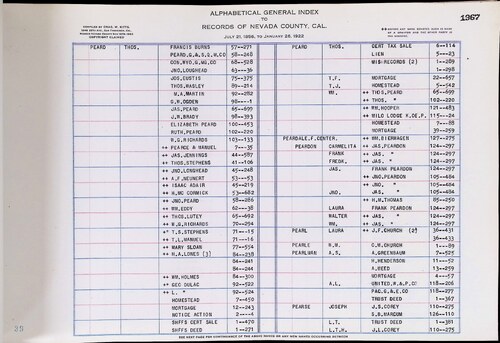 ALPHABETICAL GENERAL INDEX
TO
RECORDS OF NEVADA COUNTY, CAL.
JULY 21, 1856, TO JANUARY 28, 1922
1967
COPYRIGHT CLAIMED
PEARD THOS. FRANCIS BURNS 57--271
PEARD, G.&S.G.M.CO 58--248
CON.NYO.G.MG.CO 68--528
JNO. LOUGHEAD 63--36
JOS. EUSTIS 75--375
THOS. HASLEY 89--214
M.A. MARTIN 92--282
G.W. OGDEN 98---1
JAS. PEARD 65--690
J.R. BRADY 98--393
ELIZABETH PEARD 100--453
RUTH, PEARD 102--220
W.G. RICHARDS 103--133
++ PEARCE & MANUEL 7---35
++ JAS. JENNINGS 44--587
++ THOS. STEPHENS 41--106
++ JNO. LONGHEAD 45--248
++ A.F. NEUNERT 53---53
++ ISAAC ADAIR 45--219
++ H. MC CORMICK 53--682
++ JNO. PEARD 58--286
++ WM. EDDY 62---38
++ THOS. LUTEY 65--692
++ W.G. RICHARDS 70--294
++ T.S. STEPHENS 71---15
++ T.L. MANUEL 71---16
++ MARY SLOAN 77--554
++ H.A. LONES (3) 84--238
84--241
84--244
++ WM. HOLMES 84--300
++ GEO DULAC 92--522
++ L. " 92--524
HOMESTEAD 7--450
MORTGAGE 12--243
NOTICE ACTION 2----4
SHFFS CERT SALE 1--470
SHFFS DEED 1--271
PEARD THOS. CERT TAX SALE 6--114
LIEN 5---23
MIS: RECORDS (2) 1--289
1--298
T.F. MORTGAGE 22--657
T.J. HOMESTEAD 5--542
WM. ++ THOS. PEARD 65--699
++ THOS. " 102--220
++ WM. HOOPER 121--483
++ MILO LODGE K.OF.P. 115---24
HOMESTEAD 7---88
MORTGAGE 39--259
PEARDALE, F. CENTER. ++ WM. BIERWAGEN 127--275
PEARDON CARMELITA ++ JAS. PEARDON 124--297
FRANK ++ JAS. " 124--297
FREDK. ++ JAS. " 124--297
JAS. FRANK PEARDON 124--297
++ JNO. PEARDON 105--484
++ JNO. " 105--484
JNO. ++ JAS. " 105--484
++ H.M. THOMAS 85--250
LAURA FRANK PEARSON 124--297
WALTER ++ JAS. " 124--297
WM. ++ JAS. " 124--297
PEARL LAURA ++ J.F. CHURCH (2) 36--431
36--433
PEARLE H.M. C.M. CHURCH 1---89
PEARLMAN A.S. A. GREENBAUM 7--525
H. HENDERSON 11---52
A. BEED 13--259
MORTGAGE 4---57
A.L. UNITED, W.&P.CO 118--206
PAC.G.&E.CO 118--277
TRUST DEED 1--367
PEARSE JOSEPH J.S. COREY 110--275
S.B. MARGUM 126--110
L.T. TRUST DEED 1--381
L.T.H. J.L. COREY 110--275